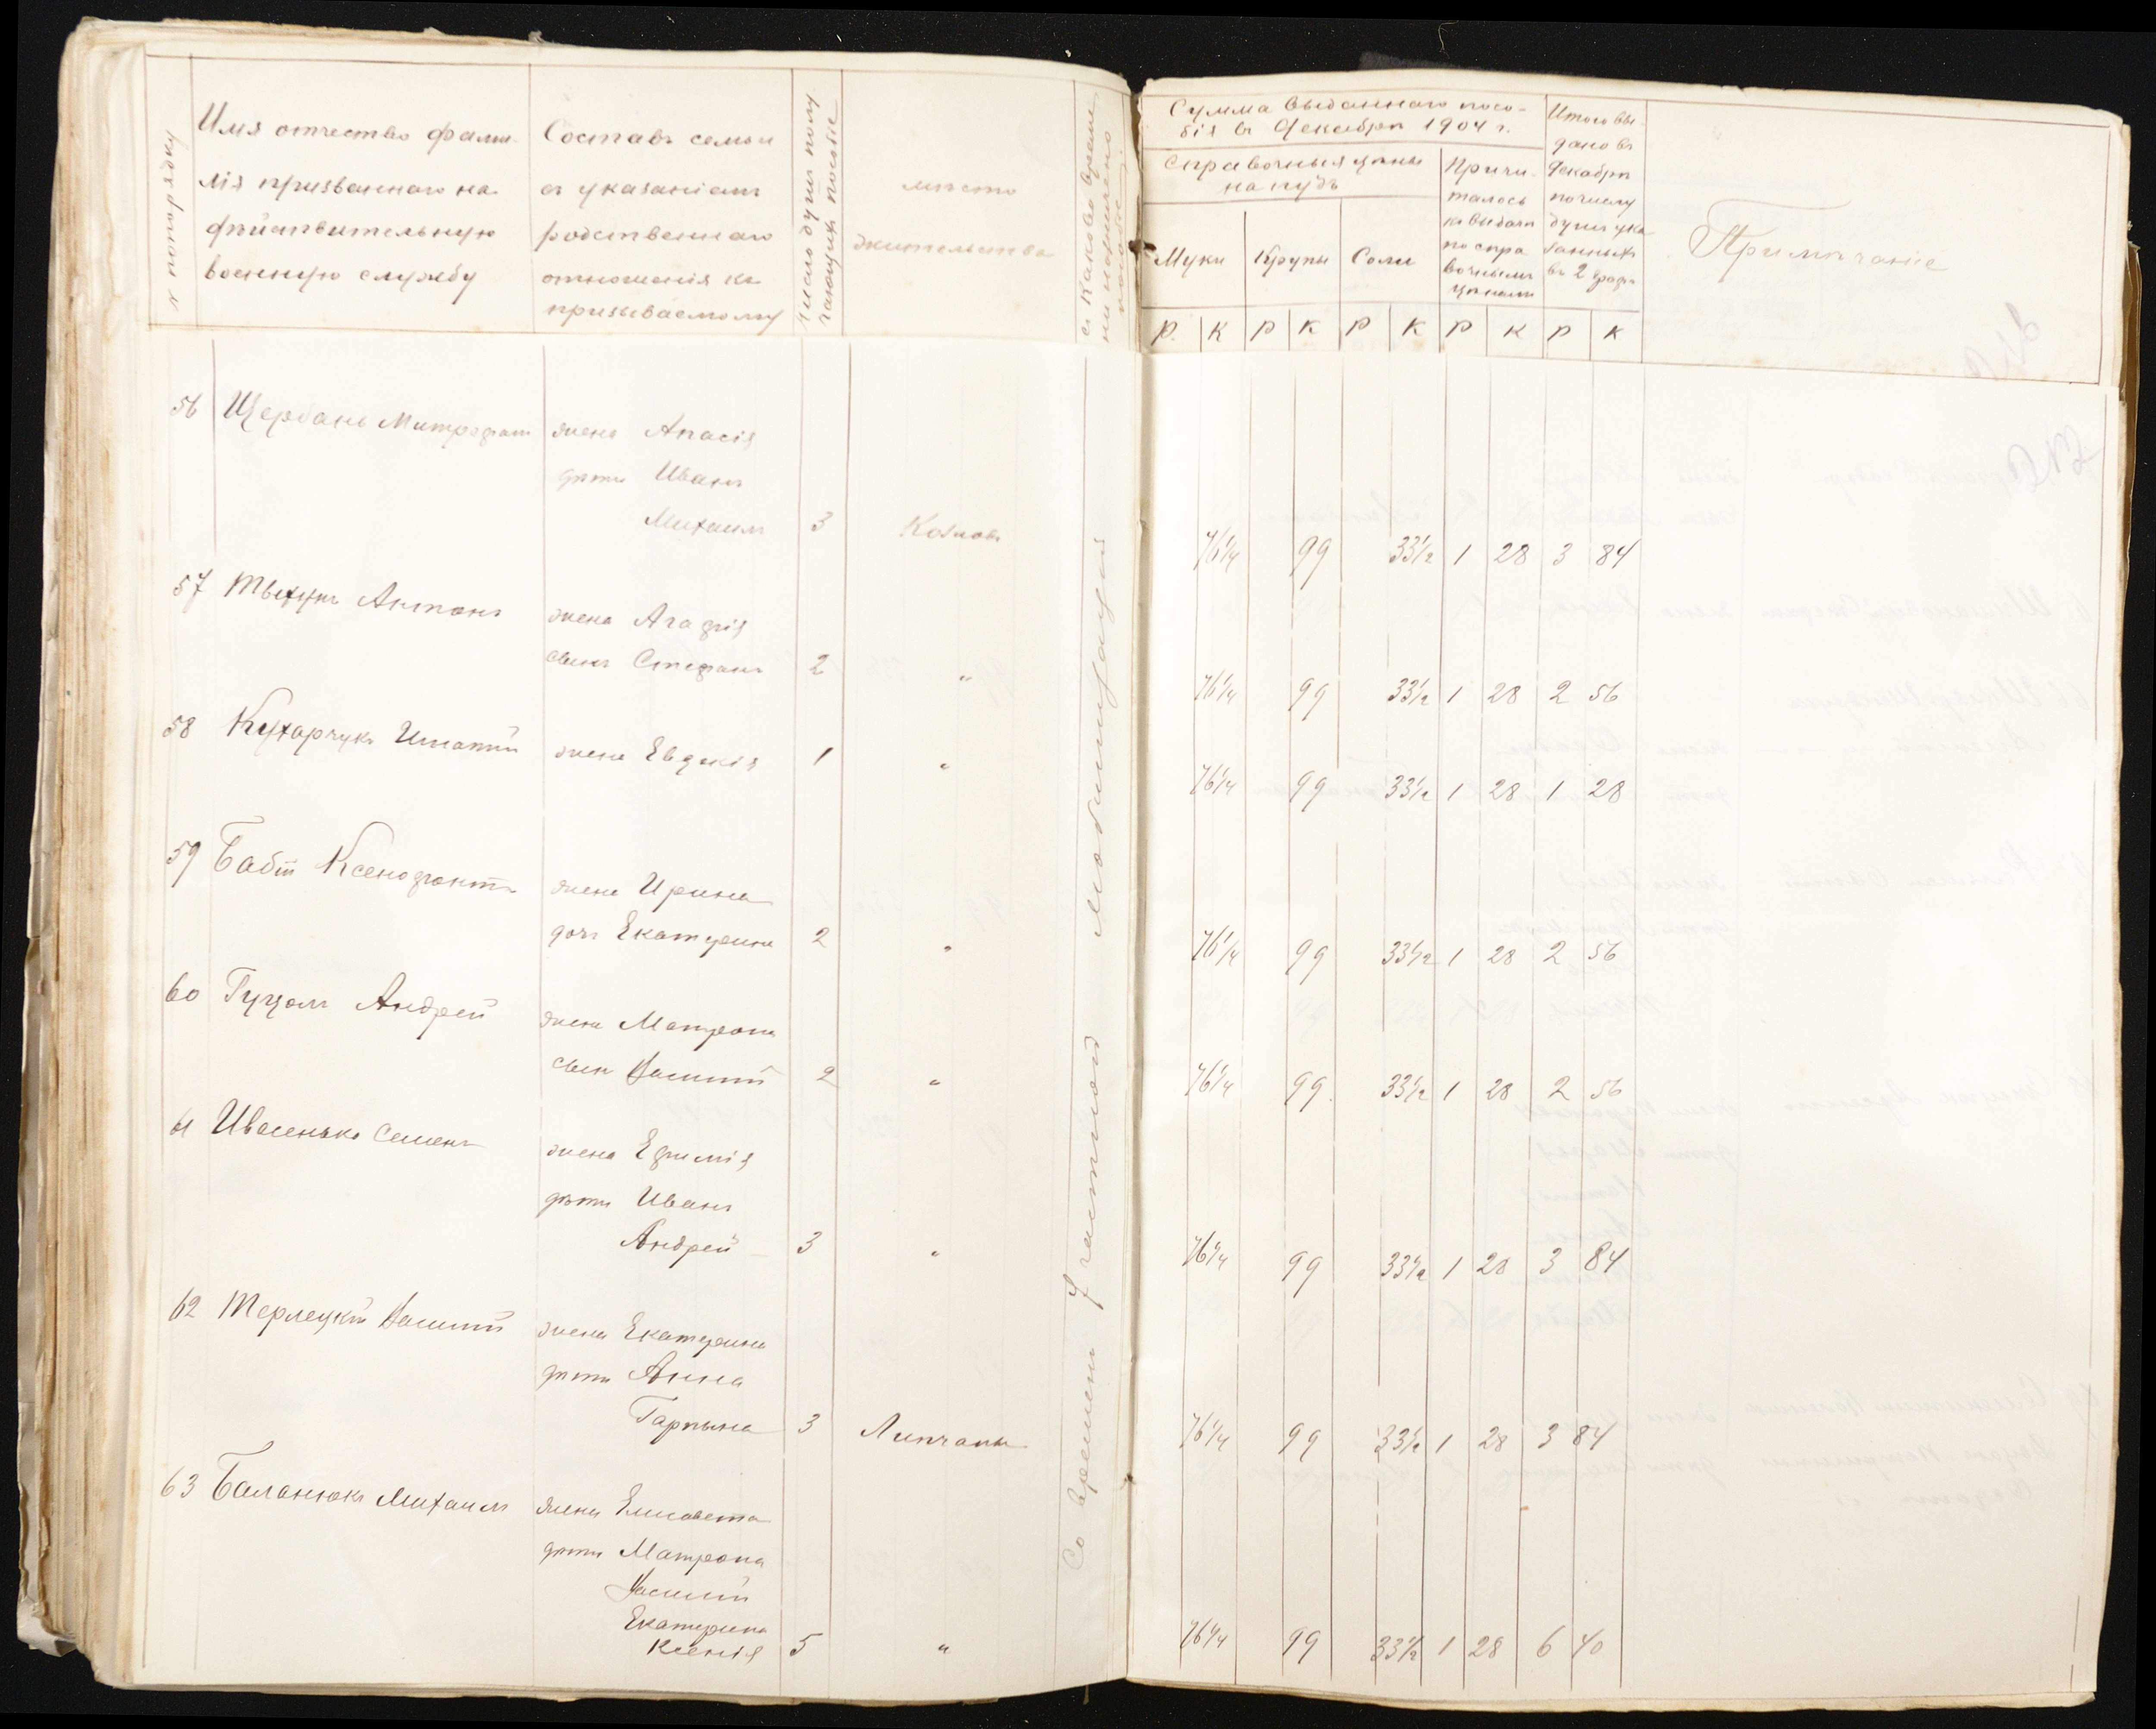 № по порядку
Имя отчество фами-
лія призваннаго на
действительную
военную службу
Составъ семьи
съ указаніемъ
родственнаго
отношенія къ
призываемому
Число душъ полу
чающихъ пособіе
место
жительства
съ какого време
ни назначено
пособіе
Сумма выданнаго посо-
бія въ Декабрѣ 1904 г.
Справочныя цѣны
на пудъ
Муки
Крупы
Соли
Р. К Р К Р К Р К Р К
Причи-
талось
къ выдачѣ
по спра
вочнымъ
цѣнамъ
Итого вы-
дано въ
Декабрѣ
по числу
душъ ука-
занныхъ
въ 2 графѣ
Примѣчаніе
56 Щербань Митрофанъ жена Апасія
дѣти Иванъ
Михаилъ 3 Козловъ 76 1/4 99 33 1/2 1 28 3 84
57 Антонъ жена Агафія
сынъ Стефанъ 2 " 76 1/4 99 33 1/2 1 28 2 56
58 Кухарчукъ Игнатій жена Евдокія 1 " 76 1/4 99 33 1/2 1 28 1 28
59 Бабій Ксенофонтъ жена Ирина
дочь Екатерина 2 " 76 1/4 99 33 1/2 1 28 2 56
60 Гуцолъ Андрей жена Матрона
сын Василій 2 " 76 1/4 99 33 1/2 1 28 2 56
61 Ивасенько Семенъ жена Ефимія
дѣти Иванъ
Андрей 3 " 76 1/4 99 33 1/2 1 28 3 84
62 Терлецкій Василій жена Екатерина
дѣти Анна
Гарпына 3 Липчаны 76 1/4 99 33 1/2 1 28 3 84
63 Баланюкъ Михаилъ жена Елисавета
дѣти Матрона
Василій
Екатерина
Ксенія 5 " 76 1/4 99 33 1/2 1 28 6 40
Со времени 7 частной мобилизаціи